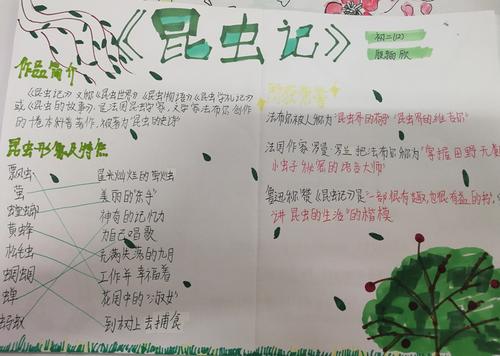 《昆虫记》
初二(2)
作品简介
《昆虫记》又称《昆虫世界》《昆虫物语》《昆虫学札记》
或《昆虫的故事》,是法国昆虫学家,文学家法布尔创作
的十卷本科普著作,被誉为"昆虫的史诗"
昆虫形象及特点
瓢虫
萤
螳螂
黄蜂
松毛虫
蝈蝈
蝉
蚂蚁
星光灿烂的
美丽的杀手
神奇的记忆力
为自己唱歌
充满失落的九月
工作并幸福着
花园中的"淑女"
到树上去捕食
法布尔被人称为"昆虫界的荷马""昆虫界的维吉尔"
法国作家罗曼·罗兰把法布尔称为"掌握田野无数
小虫子秘密的语言大师"
鲁迅称赞《昆虫记》是"一部很有趣,也很有益的书,
讲昆虫的生活"的楷模